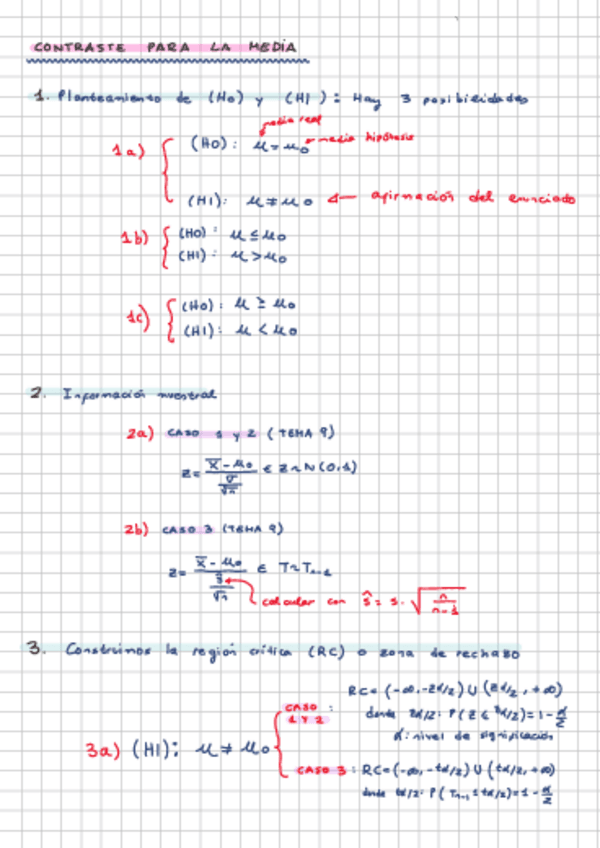 CONTRASTE PARA LA MEDIA
1. Planteamiento de (H0) y (H1): Hay 3 posibilidades
media real
1a) (H0): μ = μ0 media hipótesis
(H1): μ ≠ μ0 ← afirmación del enunciado
1b) (H0): μ ≤ μ0
(H1): μ > μ0
1c) (H0): μ ≥ μ0
(H1): μ < μ0
2. Información muestral
2a) CASO 1 y 2 (TEMA 9)
Z = (x̄ - μ0) / (σ/√n) ∈ Z ~ N(0,1)
2b) CASO 3 (TEMA 9)
Z = (x̄ - μ0) / (ŝ/√n) ∈ T ~ Tn-1
calcular con ŝ = s · √(n/(n-1))
3. Construimos la región crítica (RC) o zona de rechazo
CASO 1 Y 2 : RC = (-∞, -zα/2) ∪ (zα/2, +∞)
donde zα/2: P(Z ≤ zα/2) = 1 - α/2
α: nivel de significación
3a) (H1): μ ≠ μ0
CASO 3: RC = (-∞, -tα/2) ∪ (tα/2, +∞)
donde tα/2: P(Tn-1 ≤ tα/2) = 1 - α/2